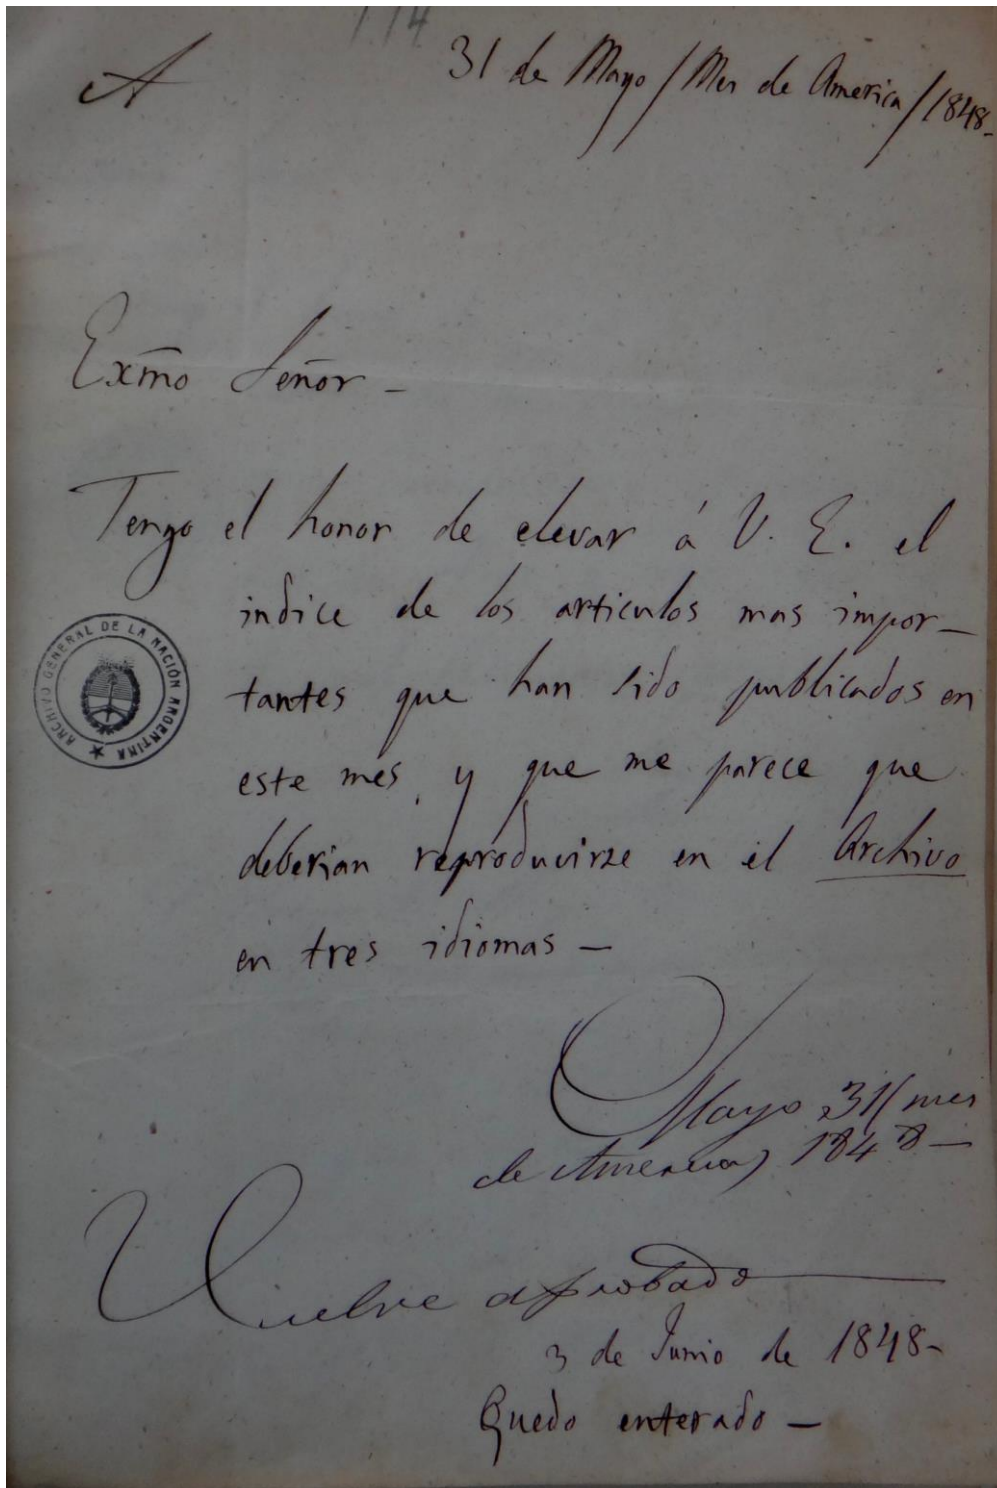 114
A
31 de Mayo/Mes de America/1848-
Exm̃o Señor -
Tengo el honor de elevar á V. E. el
indice de los articulos mas impor-
tantes que han sido publicados en
este mes, y que me parece que
deberian reproducirze en el Archivo
en tres idiomas -
ARCHIVO GENERAL DE LA NACIÓN ARGENTINA ★
Mayo 31/ mes
de America, 1848 -
Vuelve aprobado
3 de Junio de 1848-
Quedo enterado -